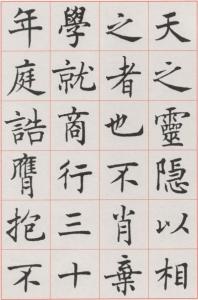 天之靈隱以相
之者也不肖棄
學就商行三十
年庭誥膺抱不